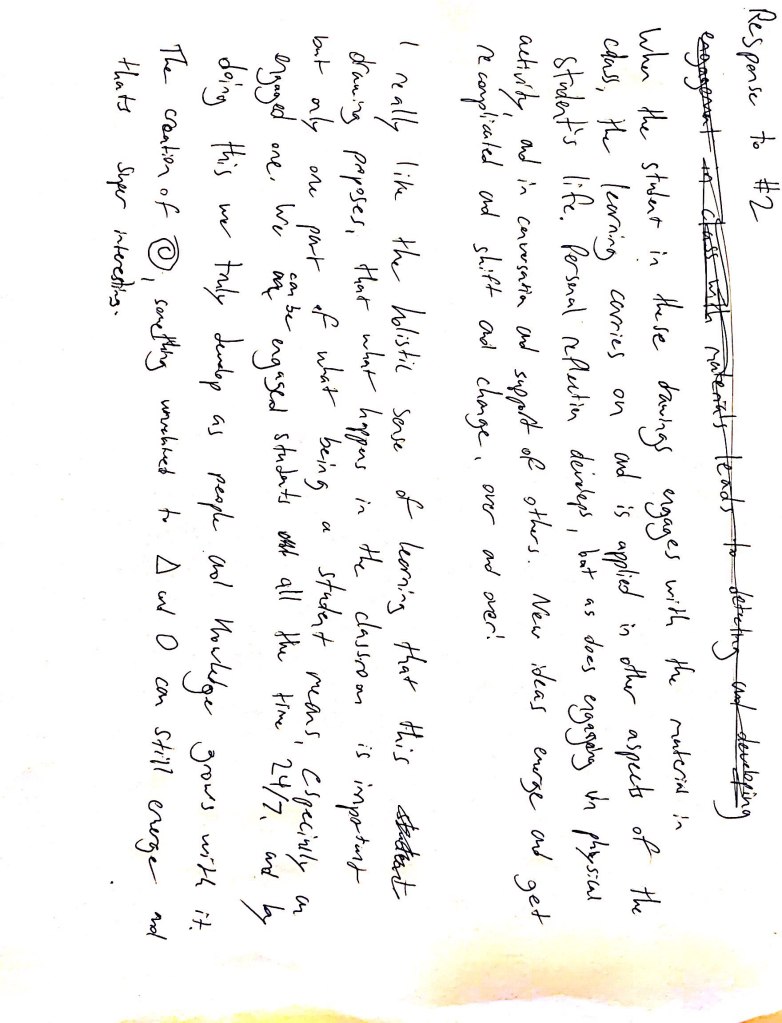 Response to #2
engagement in class with materials leads to detecting and developing
When the student in these drawings engages with the material in
class, the learning carries on and is applied in other aspects of the
student's life. Personal reflection develops, but as does engaging in physical
activity, and in conversation and support of others. New ideas emerge and get
recomplicated and shift and change, over and over!
I really like the holistic sense of learning that this student
drawing proposes, that what happens in the classroom is important
but only one part of what being a student means, especially an
engaged one. We can be engaged students all the time 24/7, and by
doing this we truly develop as people and knowledge grows with it.
The creation of , something unrelated to △ and O can still emerge and
thats super interesting.